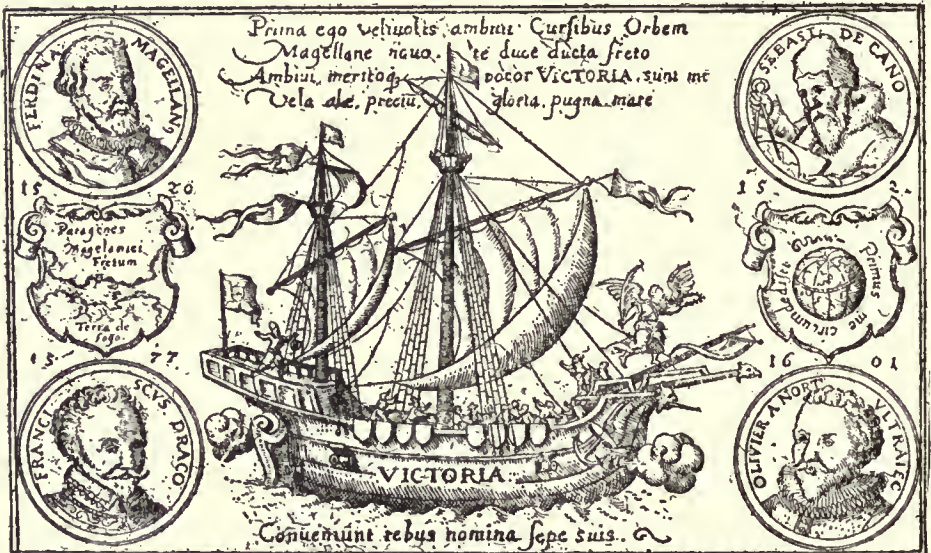 Prima ego velivolis ambivi Cursibus Orbem
Magellane novo te duce ducta freto
Ambivi, meritoq, vocor VICTORIA. sunt mi
Vela alæ, preciu, gloria, pugna, mare
FERDINA MAGELANꝰ
SEBASTI DE CANO
15 20
15 2
Patagones
Magelanici
Fretum
Terra de
fogo
Primus me circumdedisti
15 77
16 01
FRANCISCVS DRACO
OLIVIER A NORT VLTRAIEC
VICTORIA
Conveniunt rebus nomina sepe suis.